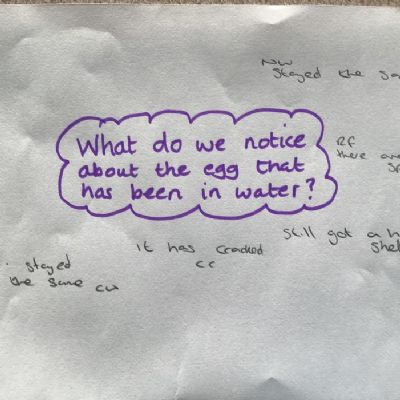 NW
Stayed the sa
What do we notice
about the egg that
has been in water?
RF
there are
Still got a h
shel
It has cracked
cc
stayed
the same cw